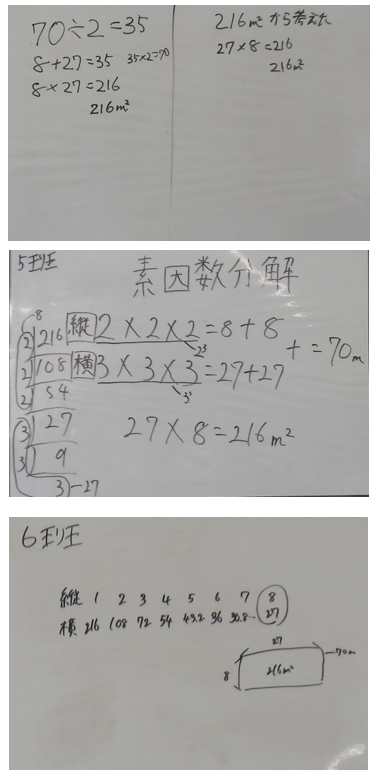 70÷2=35
8+27=35 35×2=70
8×27=216
216m²
216m²から考えた
27×8=216
216m²
5班
素因数分解
8
2)216 縦 2×2×2=8+8
2³
2)108 横 3×3×3=27+27
3³
+ =70m
2)54
3)27
27×8=216m²
3)9
3-27
6班
縦 1 2 3 4 5 6 7 8
横 216 108 72 54 43.2 36 30.8… 27
27
70m
8 216m²